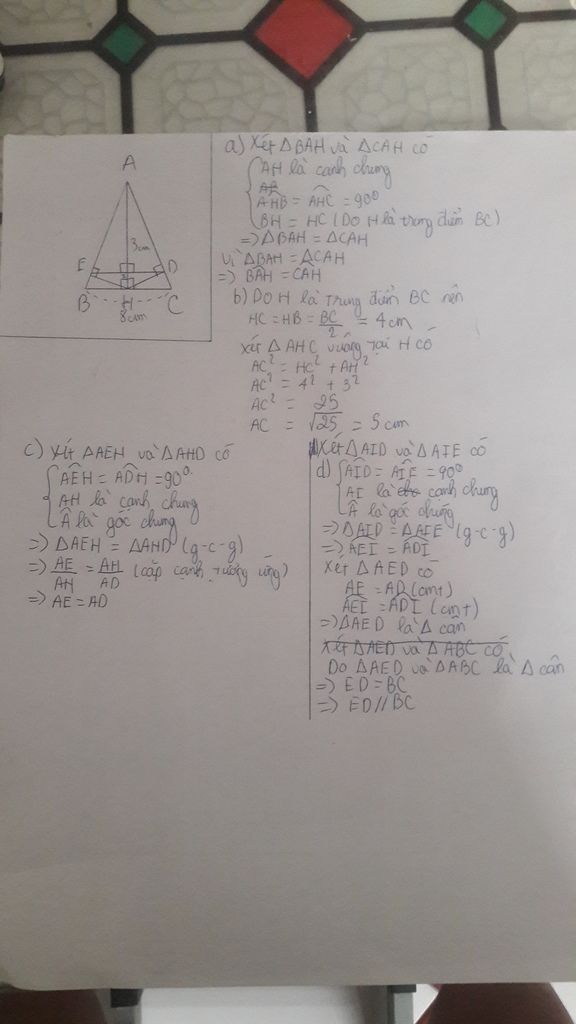 A
3cm
E
D
B
H
C
8cm
a) Xét ΔBAH và ΔCAH có
AH là cạnh chung
AHB = AHC = 90°
BH = HC (Do H là trung điểm BC)
=> ΔBAH = ΔCAH
Vì ΔBAH = ΔCAH
=> BAH = CAH
b) Do H là trung điểm BC nên
HC = HB = BC/2 = 4cm
Xét ΔAHC vuông tại H có
AC² = HC² + AH²
AC² = 4² + 3²
AC² = 25
AC = √25 = 5cm
c) Xét ΔAEH và ΔAHD có
AÊH = ADH = 90°
AH là cạnh chung
Â là góc chung
=> ΔAEH = ΔAHD (g-c-g)
=> AE/AH = AH/AD (cặp cạnh tương ứng)
=> AE = AD
Xét ΔAID và ΔAIE có
d) AID = AIE = 90°
AI là cạnh chung
Â là góc chung
=> ΔAID = ΔAIE (g-c-g)
=> AEI = ADI
Xét ΔAED có
AE = AD (cmt)
AEI = ADI (cmt)
=> ΔAED là Δ cân
Xét ΔAED và ΔABC có
Do ΔAED và ΔABC là Δ cân
=> ED = BC
=> ED // BC